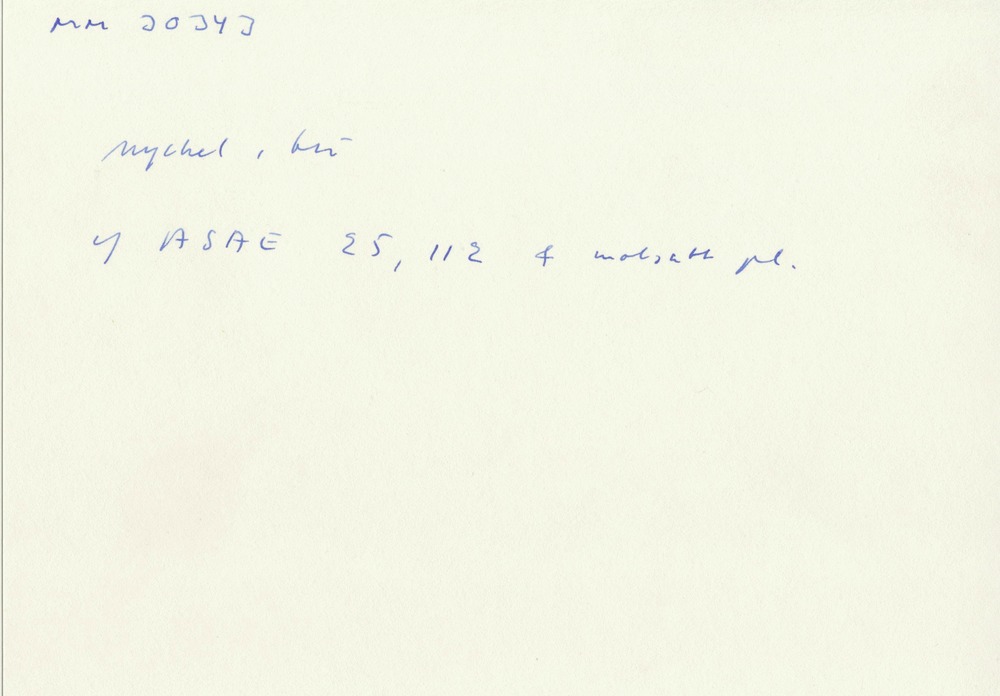 MM 30343
nyckel, brö
cf ASAE 25, 112 & motsatt pl.